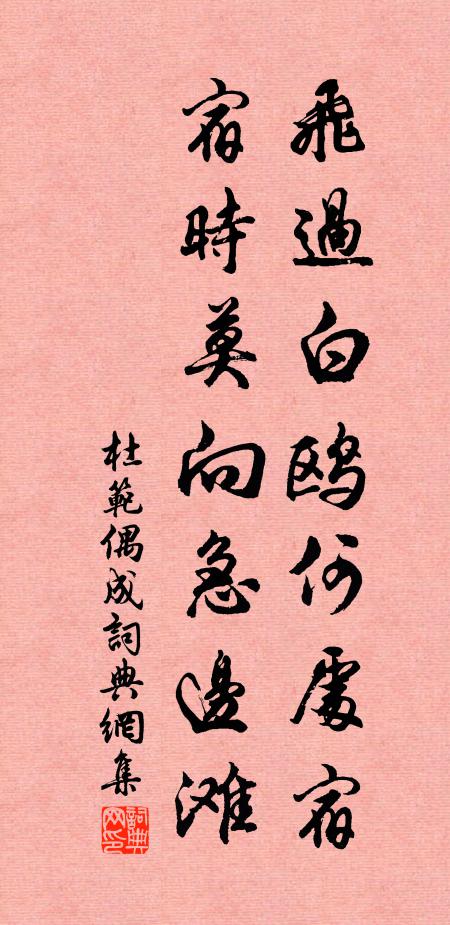 飛過白鷗何處宿
宿時莫向急邊滩
杜範偶成詞典網集
詞典网印